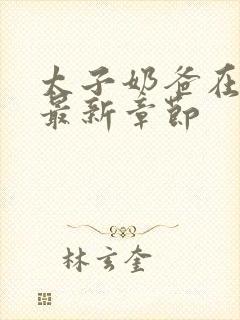 太子奶爸在
最新章节
林玄奎